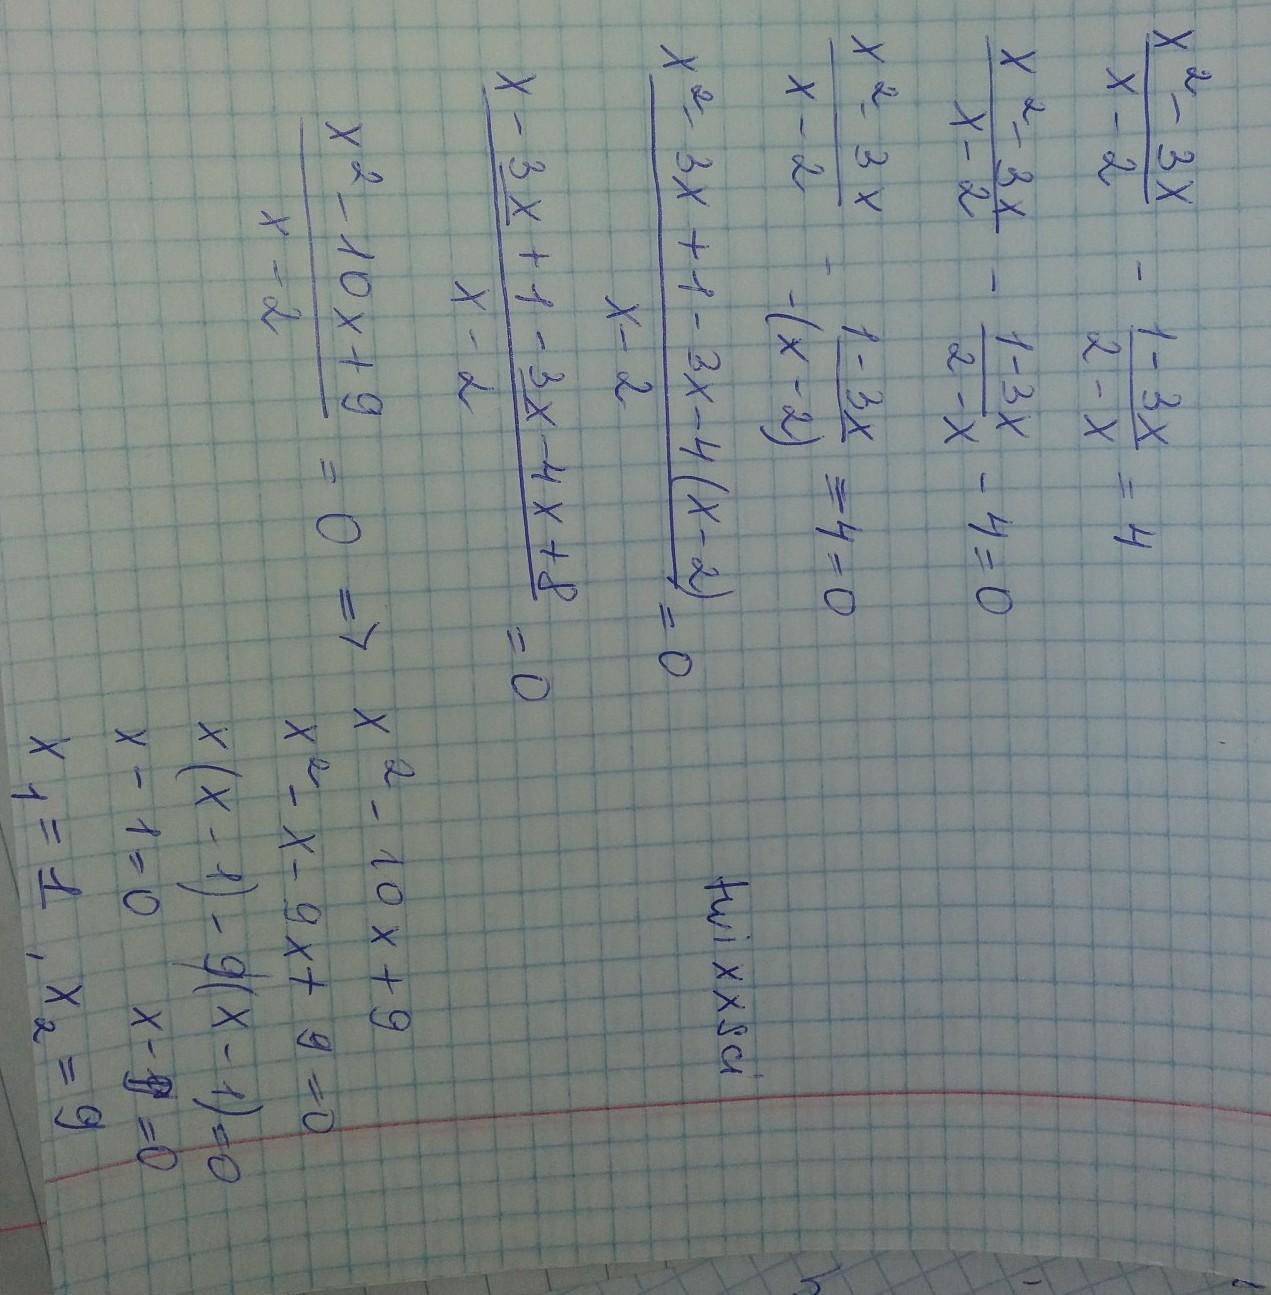 x² - 3x / x - 2 - 1 - 3x / 2 - x = 4
x² - 3x / x - 2 - 1 - 3x / 2 - x - 4 = 0
x² - 3x / x - 2 - 1 - 3x / -(x - 2) - 4 = 0
x² - 3x + 1 - 3x - 4(x - 2) / x - 2 = 0
x - 3x + 1 - 3x - 4x + 8 / x - 2 = 0
x² - 10x + 9 / x - 2 = 0 =>
x² - 10x + 9
x² - x - 9x + 9 = 0
x(x - 1) - 9(x - 1) = 0
x - 1 = 0 x - 9 = 0
x₁ = 1, x₂ = 9